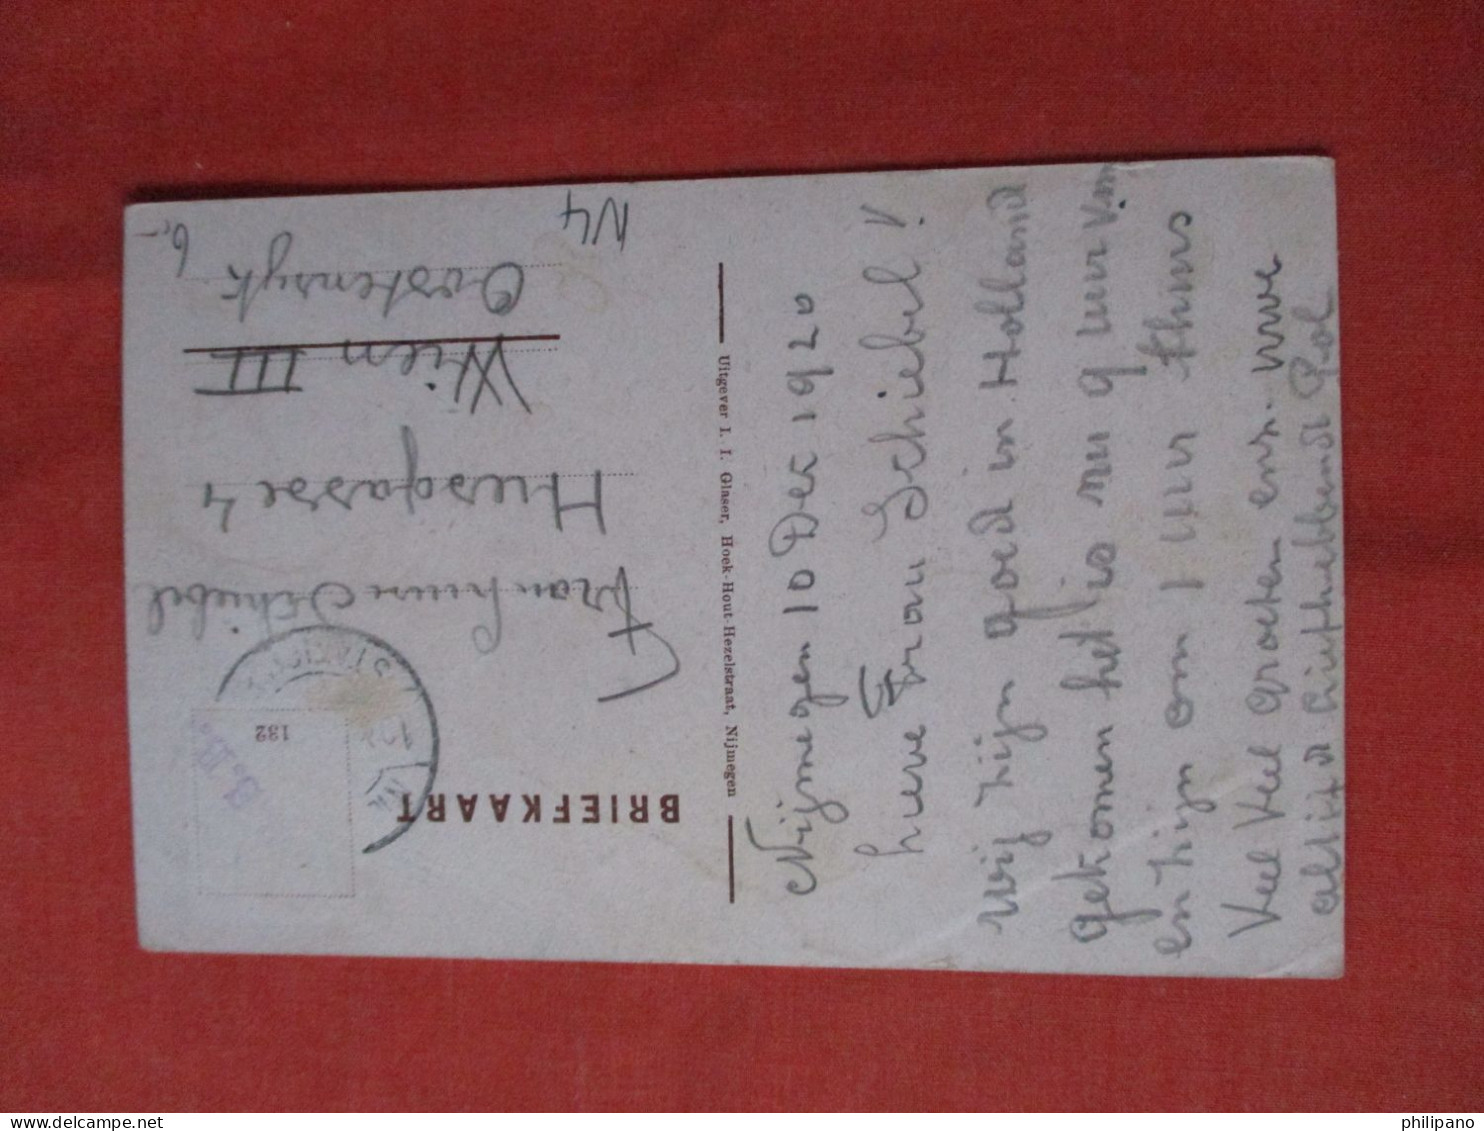 BRIEFKAART
132
Frau Schiebel
4
Wien III
Oostenryk
N4
6,-
Uitgever I. I. Glaser, Hoek-Hout-Hezelstraat, Nijmegen
Nijmegen 10 Dec 1920
lieve Frau Schiebel!
Wij zijn goed in Holland
gekomen het is nu 9 uur v.m
en zijn om 1 uur thuis
Veel Veel groeten enz. uwe
altijd liefhebbende Pol
philipano